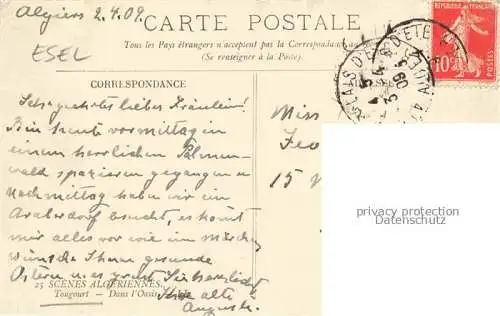 Algiers 2.4.09.
ESEL
CARTE POSTALE
Tous les Pays étrangers n'acceptent pas la Correspondance au
(Se renseigner à la Poste).
RÉPUBLIQUE FRANÇAISE
10
POSTES
CORRESPONDANCE
Sehr geehrtes liebes Fräulein!
Bin heute vormittag in
einem herrlichen Palmen-
wald spazieren gegangen u
nachmittag haben wir ein
Araberdorf besucht, es kommt
mir alles vor wie im Märchen
wünsche Ihnen gesunde
Ostern u. es grüsst Sie herzlichst
Ihre alte
Auguste.
Miss
15
privacy protection
Datenschutz
25 SCÈNES ALGÉRIENNES.
Tougourt — Dans l'Oasis